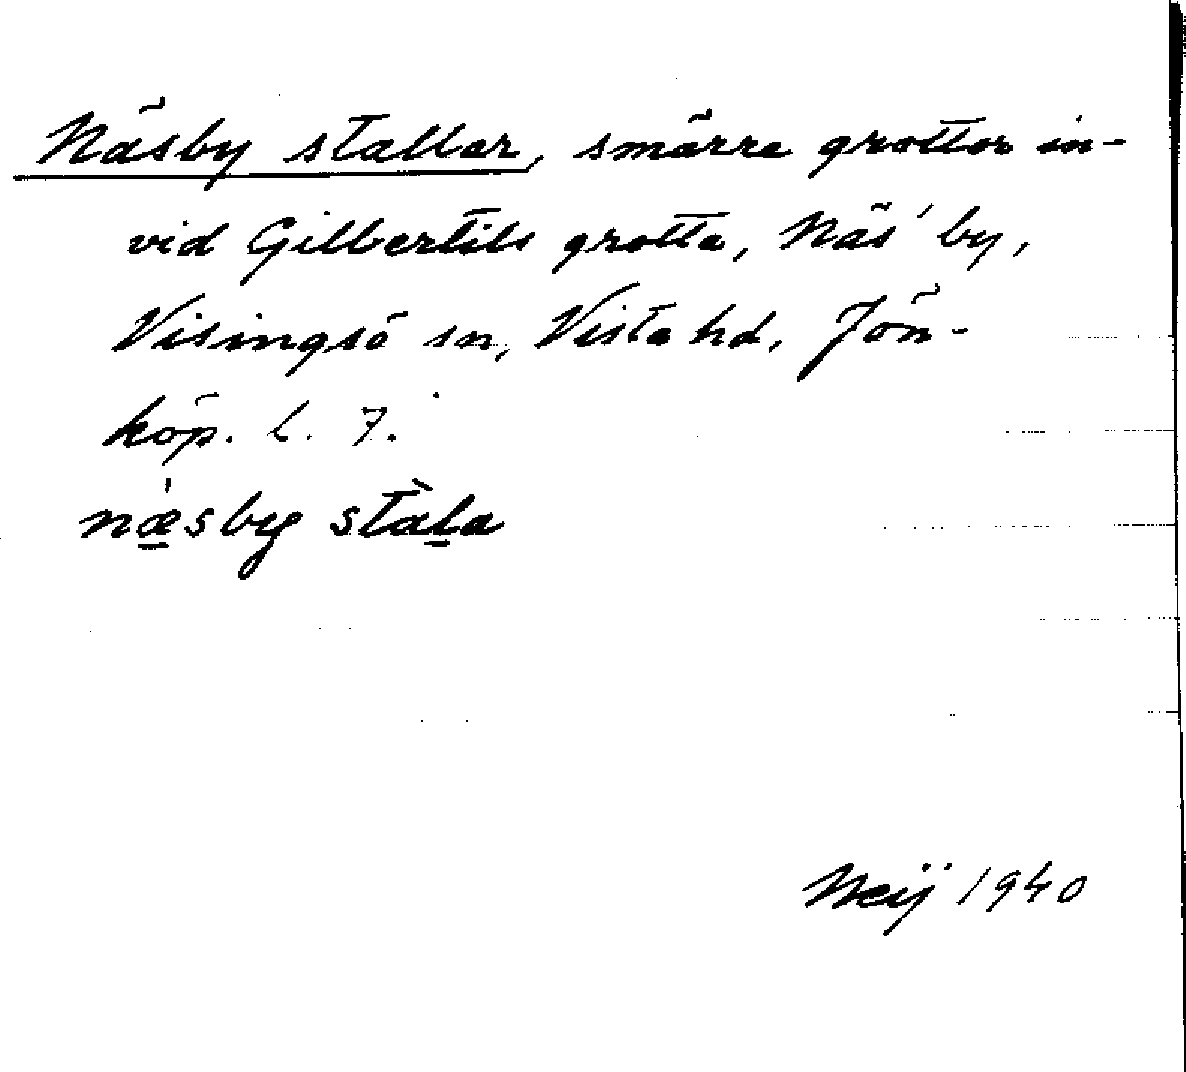 Näsby stallar, smärre grottor in-
vid Gilbertils grotta, Näs' by,
Visingsö sn, Vista hd, Jön-
köp. l. 7.
næsby stàla
Neij 1940